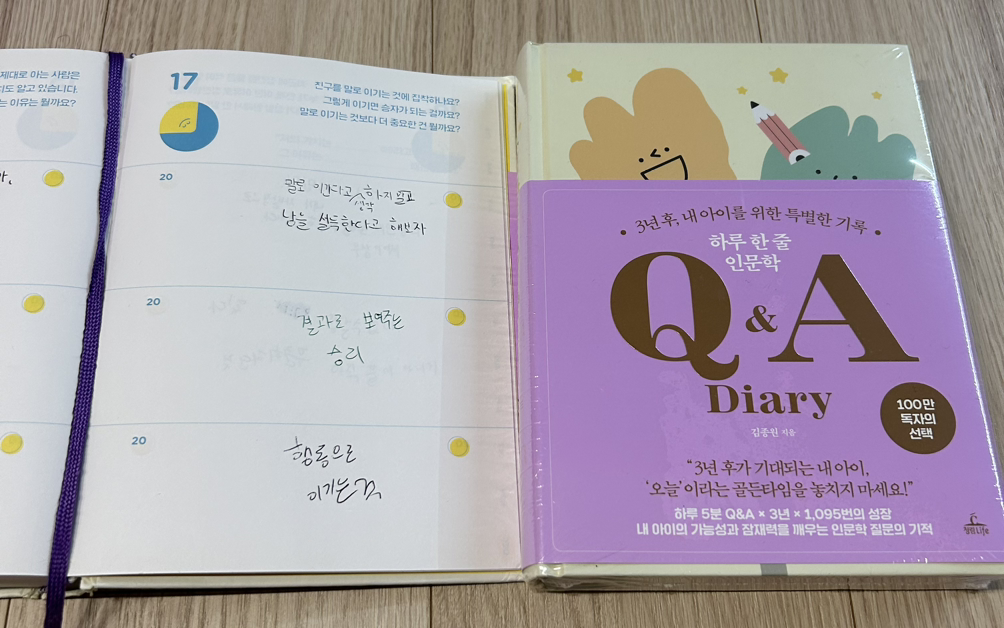 제대로 아는 사람은
도 알고 있습니다.
는 이유는 뭘까요?
17
친구를 말로 이기는 것에 집착하나요?
그렇게 이기면 승자가 되는 걸까요?
말로 이기는 것보다 더 중요한 건 뭘까요?
20
말로 이긴다고 생각하지 말고
남을 설득한다고 해보자
20
결과로 보여주는
승리
20
행동으로
이기는 것
3년 후, 내 아이를 위한 특별한 기록
하루 한 줄
인문학
Q & A
Diary
100만
독자의
선택
김종원 지음
“3년 후가 기대되는 내 아이,
‘오늘’이라는 골든타임을 놓치지 마세요!”
하루 5분 Q&A × 3년 × 1,095번의 성장
내 아이의 가능성과 잠재력을 깨우는 인문학 질문의 기적
청림Life